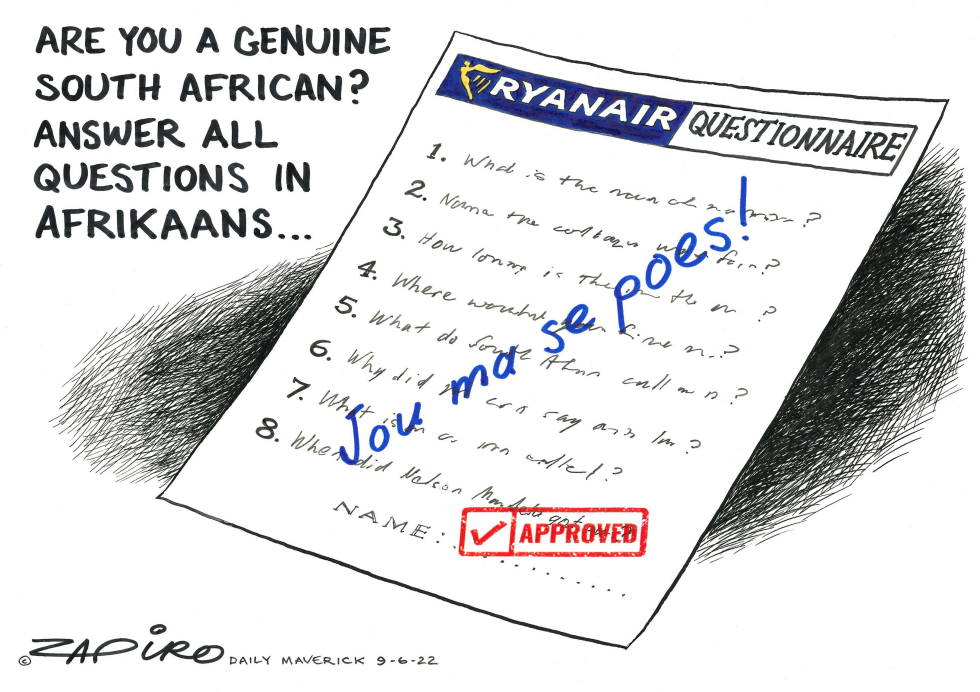 ARE YOU A GENUINE
SOUTH AFRICAN?
ANSWER ALL
QUESTIONS IN
AFRIKAANS...
RYANAIR QUESTIONNAIRE
1. is the ?
2. Name the ?
3. How is the ?
4. Where ?
5. What do South call ?
6. Why did say ?
7. What is called?
8. When did Nelson Mandela get
Jou ma se poes!
NAME:..............
APPROVED
© ZAPIRO DAILY MAVERICK 9-6-22